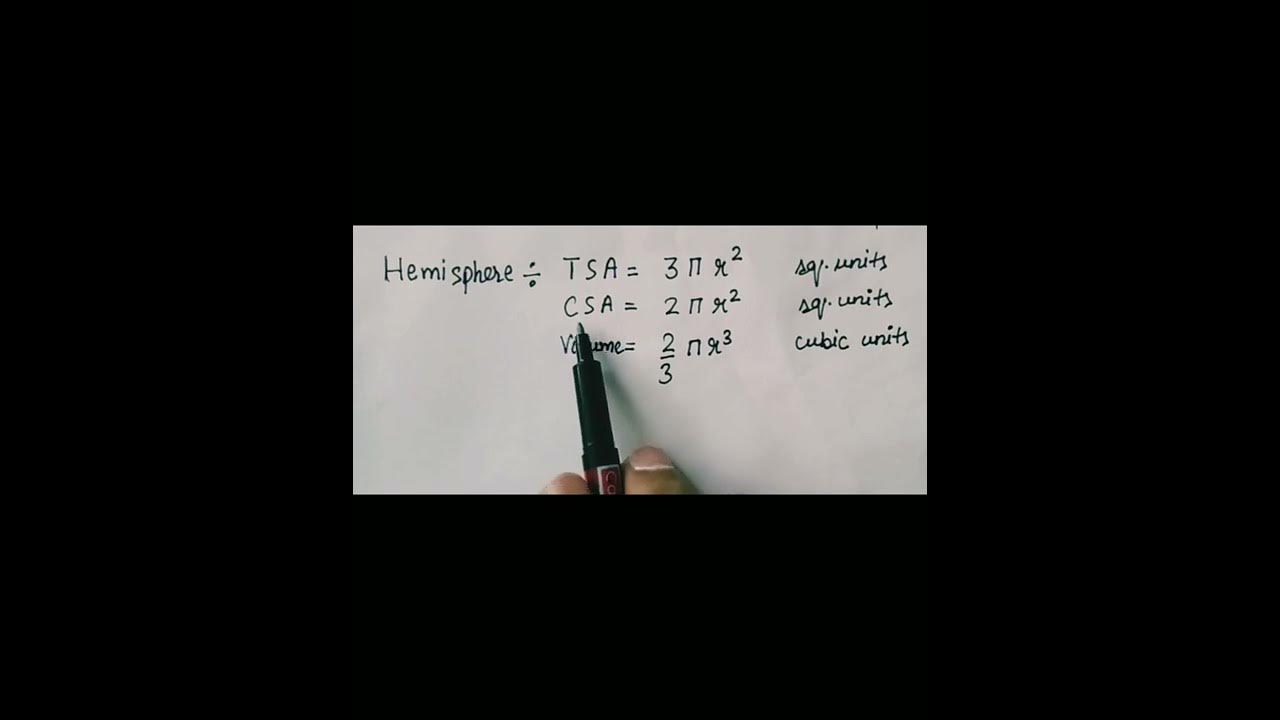 Hemisphere ÷ TSA = 3 π r² sq. units
CSA = 2 π r² sq. units
Volume = 2/3 π r³ cubic units
Co